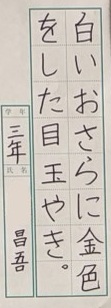 白いおさらに金色
をした目玉やき。
学年
三年
氏名
昌吾